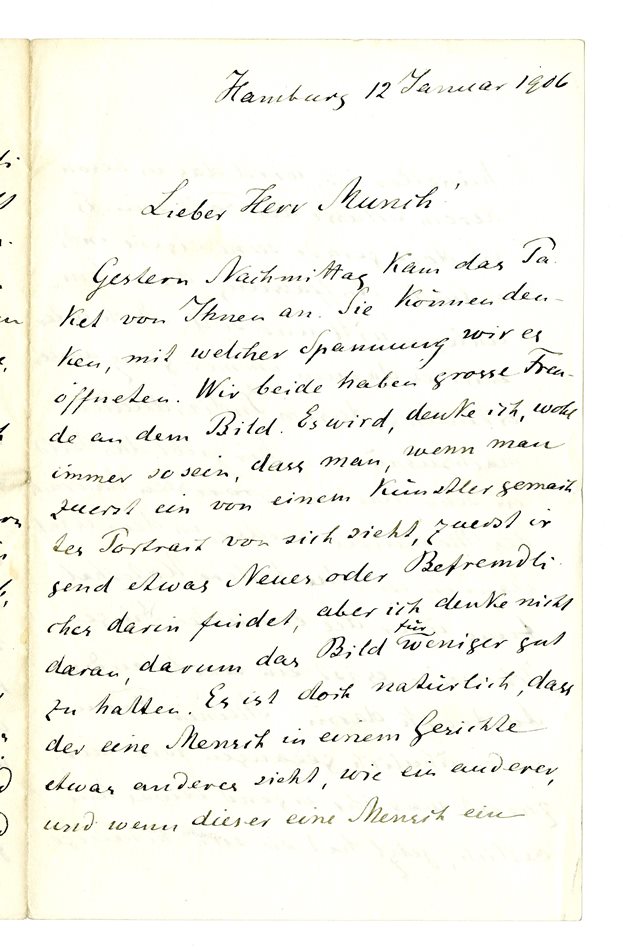 Hamburg 12 Januar 1906
Lieber Herr Munch!
Gestern Nachmittag kam das Pa-
ket von Ihnen an. Sie können den-
ken, mit welcher Spannung wir es
öffneten. Wir beide haben grosse Freu-
de an dem Bild. Es wird, denke ich, wohl
immer so sein, dass man, wenn man
zuerst ein von einem Künstler gemach
tes Portrait von sich sieht, zuerst ir
gend etwas Neues oder Befremdli
ches darin findet, aber ich denke nicht
für
daran, darum das Bild weniger gut
zu halten. Es ist doch natürlich, dass
der eine Mensch in einem Gesichte
etwas anderes sieht, wie ein anderer,
und wenn dieser eine Mensch ein